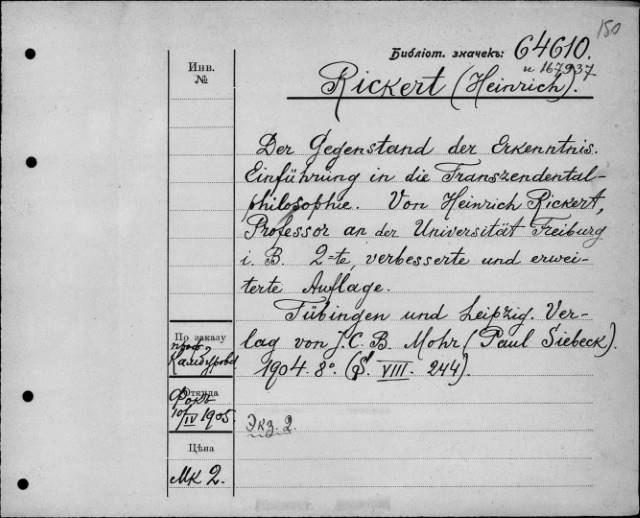 150
Библіот. значекъ: 64610.
и 167937
Инв.
№
Rickert (Heinrich).
Der Gegenstand der Erkenntnis.
Einführung in die Transzendental-
philosophie. Von Heinrich Rickert,
Professor an der Universität Freiburg
i. B. 2-te, verbesserte und erwei-
terte Auflage.
Tübingen und Leipzig. Ver-
lag von J. C. B. Mohr (Paul Siebeck).
1904. 8º. (S. VIII. 244).
По заказу
проф.
Откуда
Фокъ
10/IV 1905.
Экз. 2.
Цѣна
Мк 2.